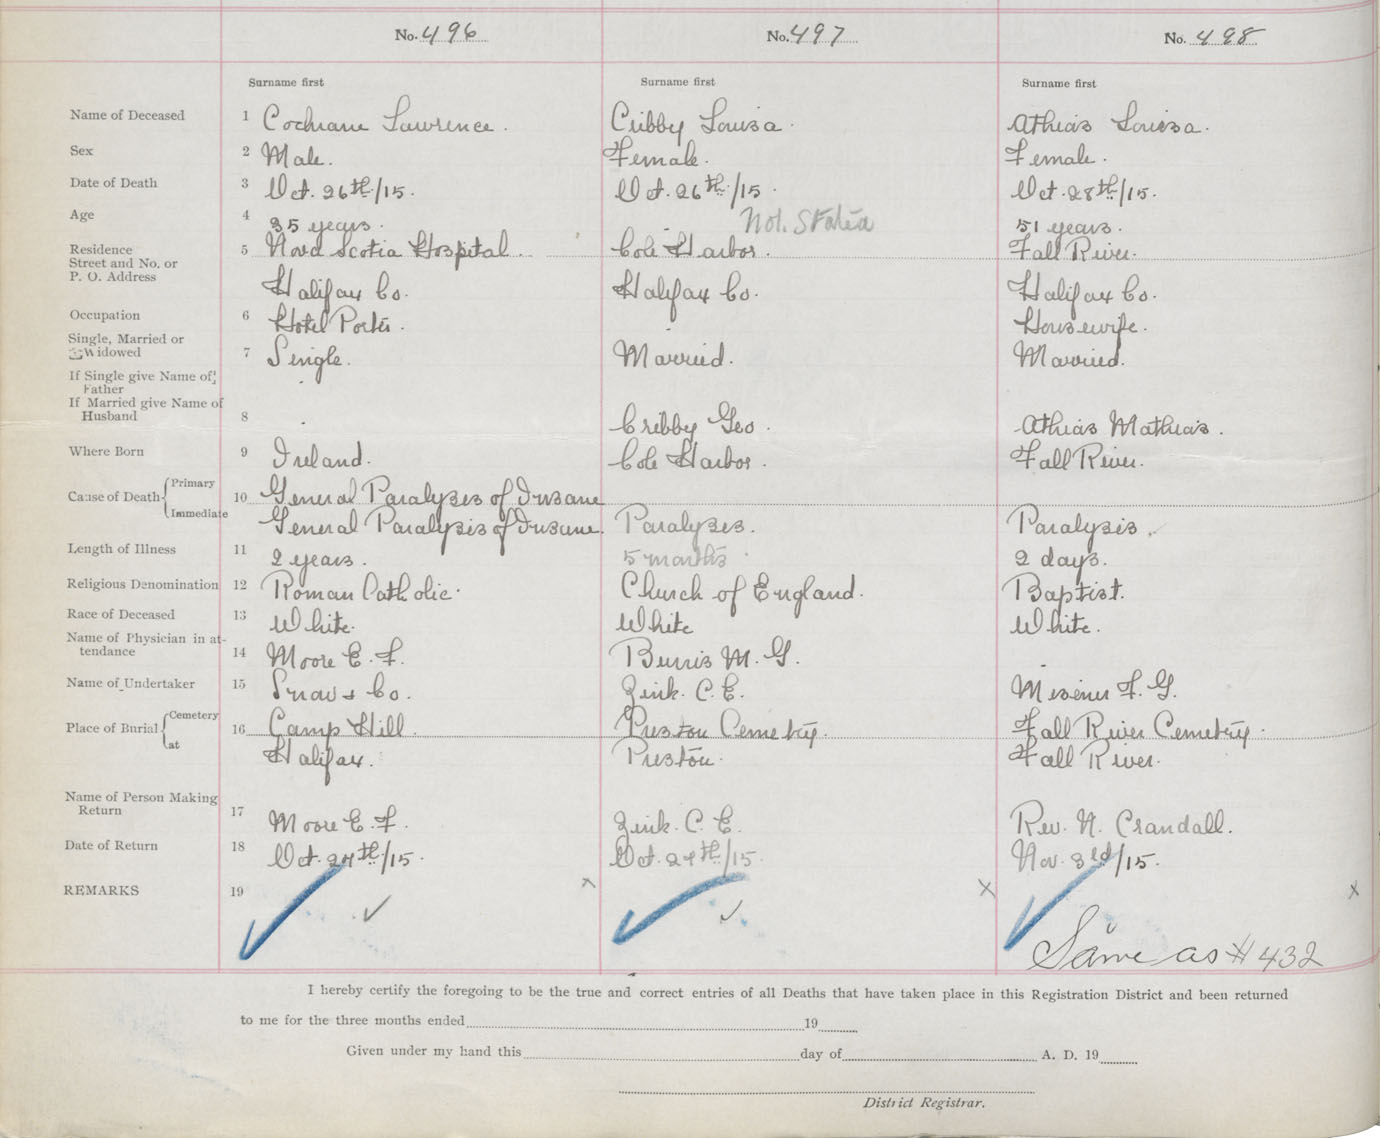 No. 496 No. 497 No. 498
Surname first Surname first Surname first
Name of Deceased 1 Cochrane Lawrence. Cribby Louisa. Athias Louisa.
Sex 2 Male. Female. Female.
Date of Death 3 Oct. 26th/15. Oct. 26th/15. Oct. 28th/15.
Age 4 35 years. Not. Stated 51 years.
Residence 5 Nova Scotia Hospital. Cole Harbor. Fall River.
Street and No. or
P. O. Address Halifax Co. Halifax Co. Halifax Co.
Occupation 6 Hotel Porter. Housewife.
Single, Married or
Widowed 7 Single. Married. Married.
If Single give Name of
Father
If Married give Name of
Husband 8 Cribby Geo. Athias Mathias.
Where Born 9 Ireland. Cole Harbor. Fall River.
Cause of Death Primary 10 General Paralyses of Insane
Immediate General Paralysis of Insane. Paralyses. Paralysis.
Length of Illness 11 2 years. 5 months. 2 days.
Religious Denomination 12 Roman Catholic. Church of England. Baptist.
Race of Deceased 13 White. White White.
Name of Physician in at-
tendance 14 Moore E. F. Burris M. G.
Name of Undertaker 15 Snow & Co. Zink. C. E. Misener F. G.
Place of Burial Cemetery 16 Camp Hill. Preston Cemetery. Fall River Cemetery.
at Halifax. Preston. Fall River.
Name of Person Making
Return 17 Moore E. F. Zink. C. E. Rev. N. Crandall.
Date of Return 18 Oct. 27th/15. Oct. 27th/15. Nov. 3rd/15.
REMARKS 19
Same as # 432
I hereby certify the foregoing to be the true and correct entries of all Deaths that have taken place in this Registration District and been returned
to me for the three months ended 19
Given under my hand this day of A. D. 19
District Registrar.